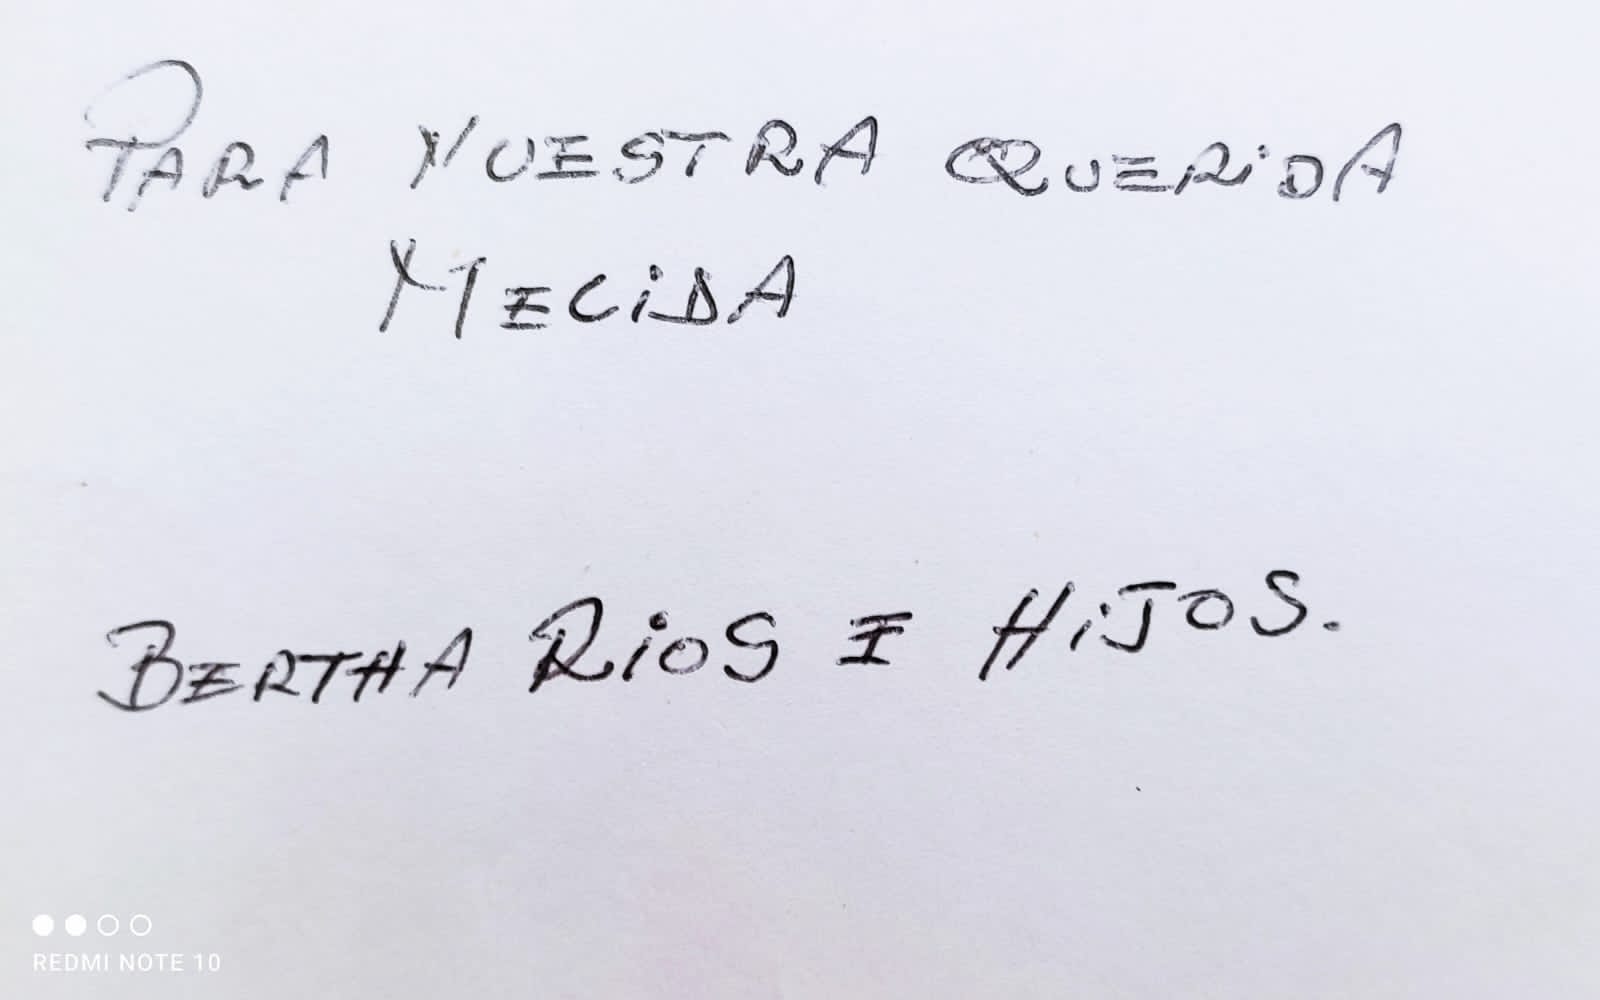 PARA NUESTRA QUERiDA
MECiDA
BERTHA RioS E HiJOS.
REDMI NOTE 10